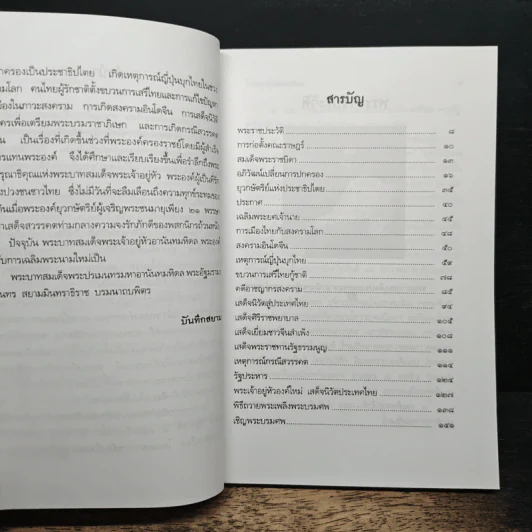 กครองเป็นประชาธิปไตย เกิดเหตุการณ์ญี่ปุ่นบุกไทยในช่วง
ามโลก คนไทยผู้รักชาติตั้งขบวนการเสรีไทยและการแก้ไขปัญหา
องในภาวะสงคราม การเกิดสงครามอินโดจีน การเสด็จนิวัติ
ครเพื่อเตรียมพระบรมราชาภิเษก และการเกิดกรณีสวรรคต
น เป็นเรื่องที่เกิดขึ้นช่วงที่พระองค์ครองราชย์โดยมีผู้สำเร็จ
การแทนพระองค์ จึงได้ศึกษาและเรียบเรียงขึ้นเพื่อรำลึกถึงพระ
รุณาธิคุณแห่งพระบาทสมเด็จพระเจ้าอยู่หัว พระองค์ผู้เป็นที่รัก
ปวงชนชาวไทย ซึ่งไม่มีวันที่จะลืมเลือนถึงความทุกข์ระทมของ
นเมื่อพระองค์ยุวกษัตริย์ผู้เจริญพระชนมายุเพียง ๒๑ พรรษา
าเสด็จสวรรคตท่ามกลางความจงรักภักดีของพสกนิกรถ้วนหน้า
ปัจจุบัน พระบาทสมเด็จพระเจ้าอยู่หัวอานันทมหิดล พระองค์
รับการเฉลิมพระนามใหม่เป็น
พระบาทสมเด็จพระปรเมนทรมหาอานันทมหิดล พระอัฐมราม
นทร สยามมินทราธิราช บรมนาถบพิตร
บันทึกสยาม
สารบัญ
พระราชประวัติ ๘
การก่อตั้งคณะราษฎร์ ๑๐
สมเด็จพระราชบิดา ๑๓
อภิวัฒน์เปลี่ยนการปกครอง ๑๖
ยุวกษัตริย์แห่งประชาธิปไตย ๓๕
ประกาศ ๔๐
เฉลิมพระยศเจ้านาย ๔๕
การเมืองไทยกับสงครามโลก ๔๘
สงครามอินโดจีน ๕๐
เหตุการณ์ญี่ปุ่นบุกไทย ๕๙
ขบวนการเสรีไทยกู้ชาติ ๗๘
คดีอาชญากรสงคราม ๘๕
เสด็จนิวัตสู่ประเทศไทย ๙๔
เสด็จศิริราชพยาบาล ๑๐๕
เสด็จเยี่ยมชาวจีนสำเพ็ง ๑๐๘
เสด็จพระราชทานรัฐธรรมนูญ ๑๑๑
เหตุการณ์กรณีสวรรคต ๑๑๔
รัฐประหาร ๑๒๔
พระเจ้าอยู่หัวองค์ใหม่ เสด็จนิวัตประเทศไทย ๑๒๗
พิธีถวายพระเพลิงพระบรมศพ ๑๓๘
เชิญพระบรมศพ ๑๔๑